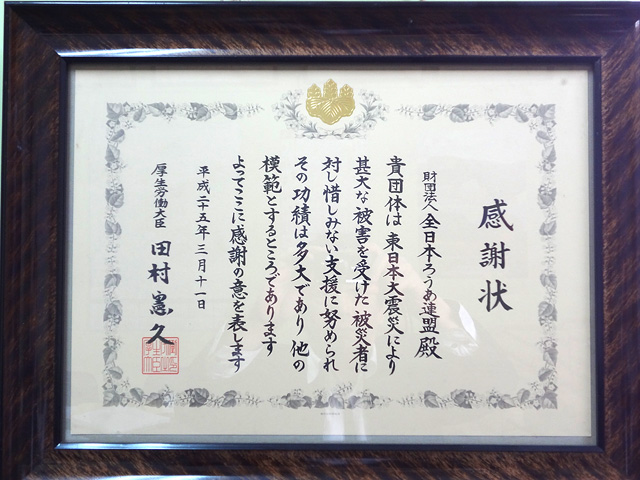 感謝状
財団法人 全日本ろうあ連盟 殿
貴団体は 東日本大震災により
甚大な被害を受けた被災者に
対し惜しみない支援に努められ
その功績は多大であり 他の
模範とするところであります
よってここに感謝の意を表します
平成二十五年三月十一日
厚生労働大臣 田村憲久